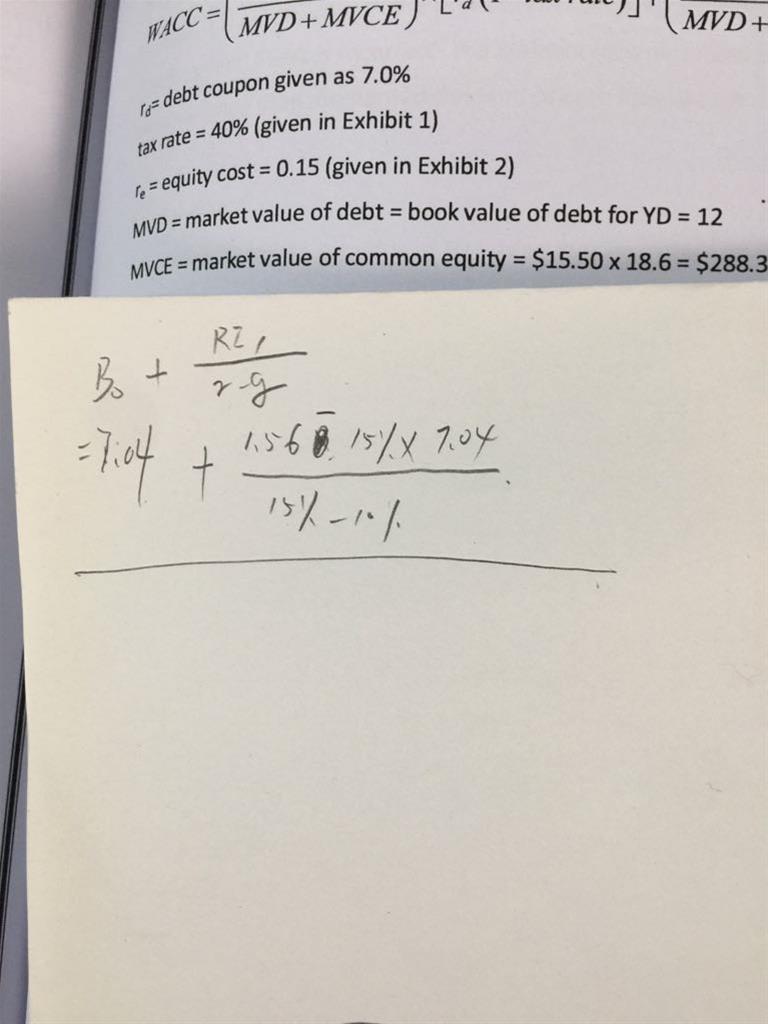 WACC = ( MVD + MVCE ) MVD +
r_d = debt coupon given as 7.0%
tax rate = 40% (given in Exhibit 1)
r_e = equity cost = 0.15 (given in Exhibit 2)
MVD = market value of debt = book value of debt for YD = 12
MVCE = market value of common equity = $15.50 x 18.6 = $288.3
B₀ + RI₁
r-g
=7.04 + 1.56 - 15% x 7.04
15% - 10%